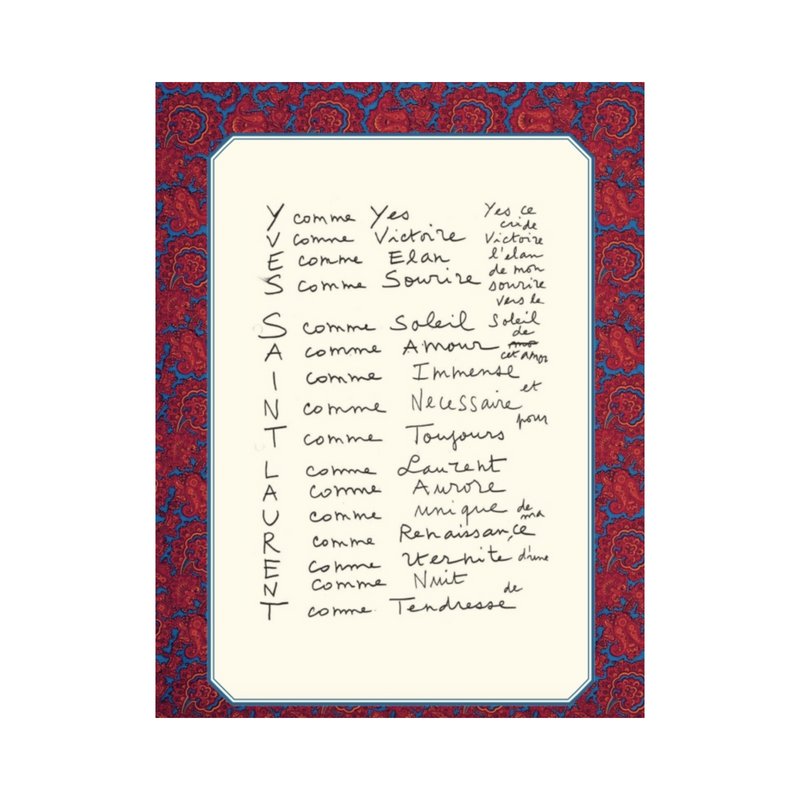 Y comme Yes
V comme Victoire
E comme Elan
S comme Sourire
S comme Soleil
A comme Amour
I comme Immense et
N comme Necessaire
T comme Toujours pour
L comme Laurent
A comme Aurore
U comme unique de ma
R comme Renaissance
E comme Eternite d'une
N comme Nuit
T comme Tendresse de
Yes ce
cri de
Victoire
l'elan
de mon
sourire
vers le
Soleil
de
cet amor